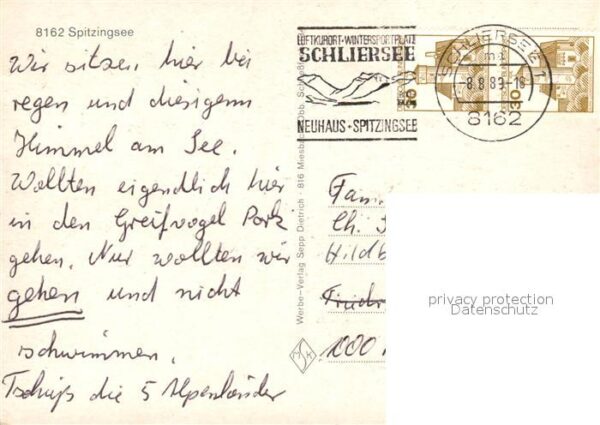 8162 Spitzingsee
Wir sitzen hier bei
regen und diesigem
Himmel am See.
Wollten eigendlich hier
in den Greifvogel Park
gehen. Nur wollten wir
gehen und nicht
schwimmen.
Tschüß die 5 Alpenländer
LUFTKURORT·WINTERSPORTPLATZ
SCHLIERSEE
NEUHAUS·SPITZINGSEE
SCHLIERSEE 1
-8.8.89-18
8162
30
30
Werbe-Verlag Sepp Dietrich · 816 Miesbach/Obb.
Fam.
Ch.
Hildb
Friedr
1000
privacy protection
Datenschutz